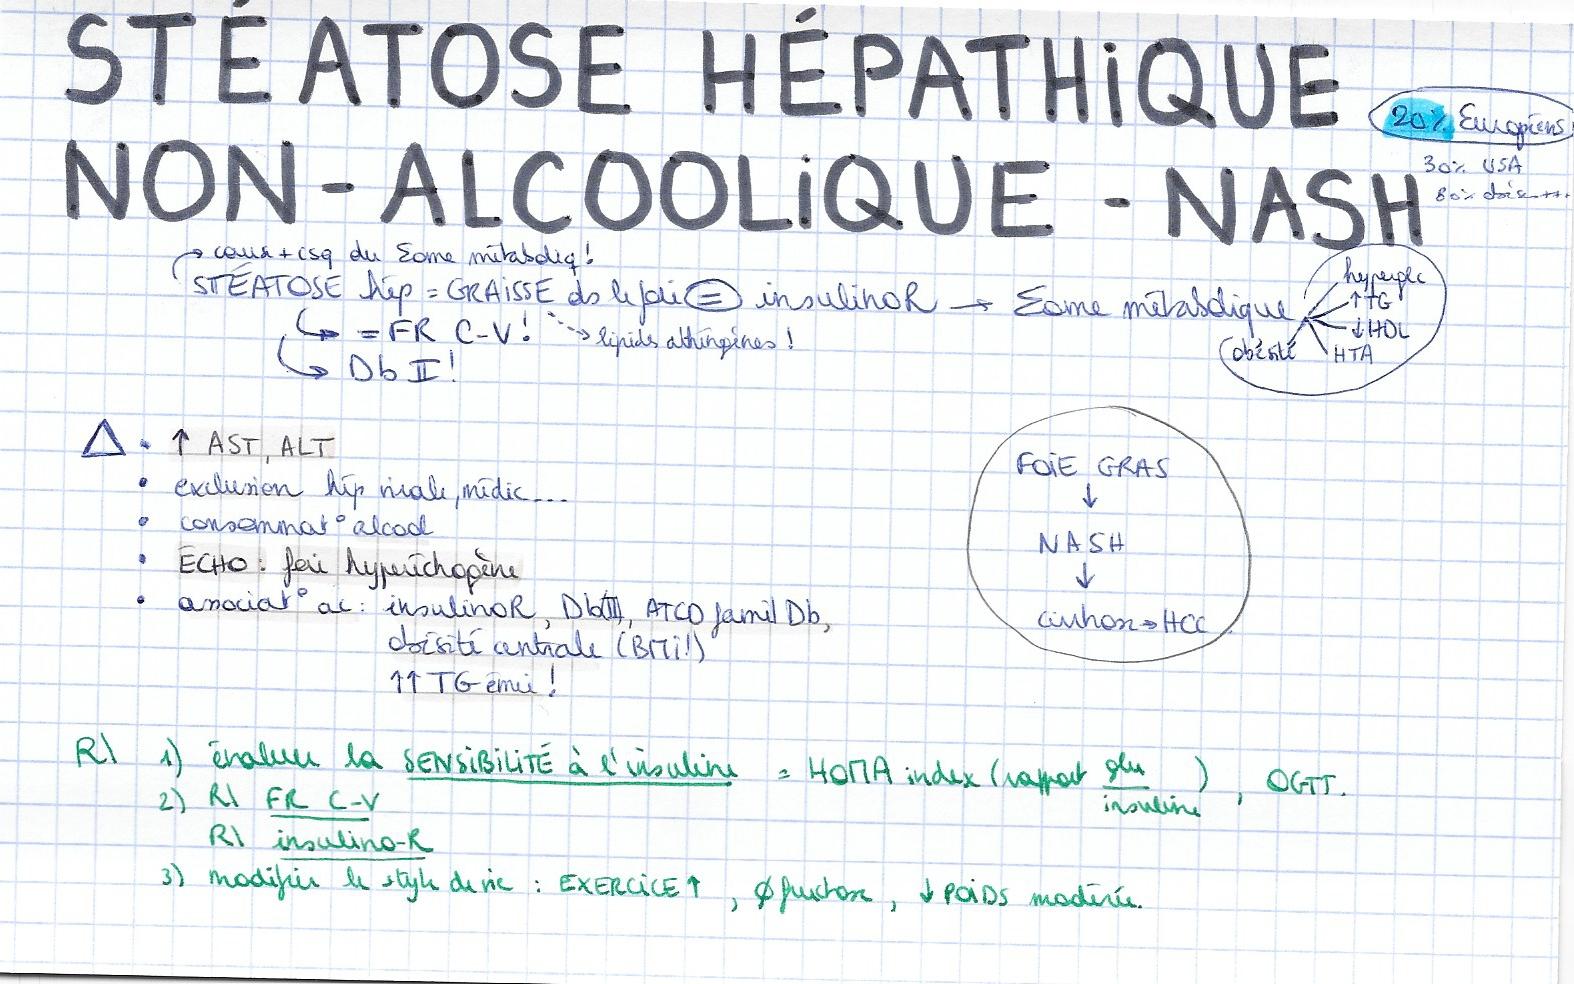 STÉATOSE HÉPATHiQUE
20% Européens
NON-ALCOOLiQUE - NASH
30% USA
80% obèse +++
→ cause + csq du Σome métaboliq!
STÉATOSE hép = GRAiSSE ds le foie = insulinoR → Σome métabolique
hyperglc
↑TG
↓HDL
HTA
obésité
↳ = FR C-V! → lipides athérogènes!
↳ Db II!
△ • ↑ AST, ALT
• exclusion hép virale, médic...
• consommat° alcool
• ÉCHO: foie hyperéchogène
• associat° ac: insulinoR, Db II, ATCD famil Db,
obésité centrale (BMi!)
↑↑ TG émie!
FOiE GRAS
↓
NASH
↓
cirrhose → HCC
R\ 1) évaluer la SENSiBiLiTÉ à l'insuline = HOMA index (rapport glu/insuline), OGTT.
2) R\ FR C-V
R\ insulino-R
3) modifier le style de vie: EXERCiCE↑, Ø fructose, ↓ POiDS modérée.